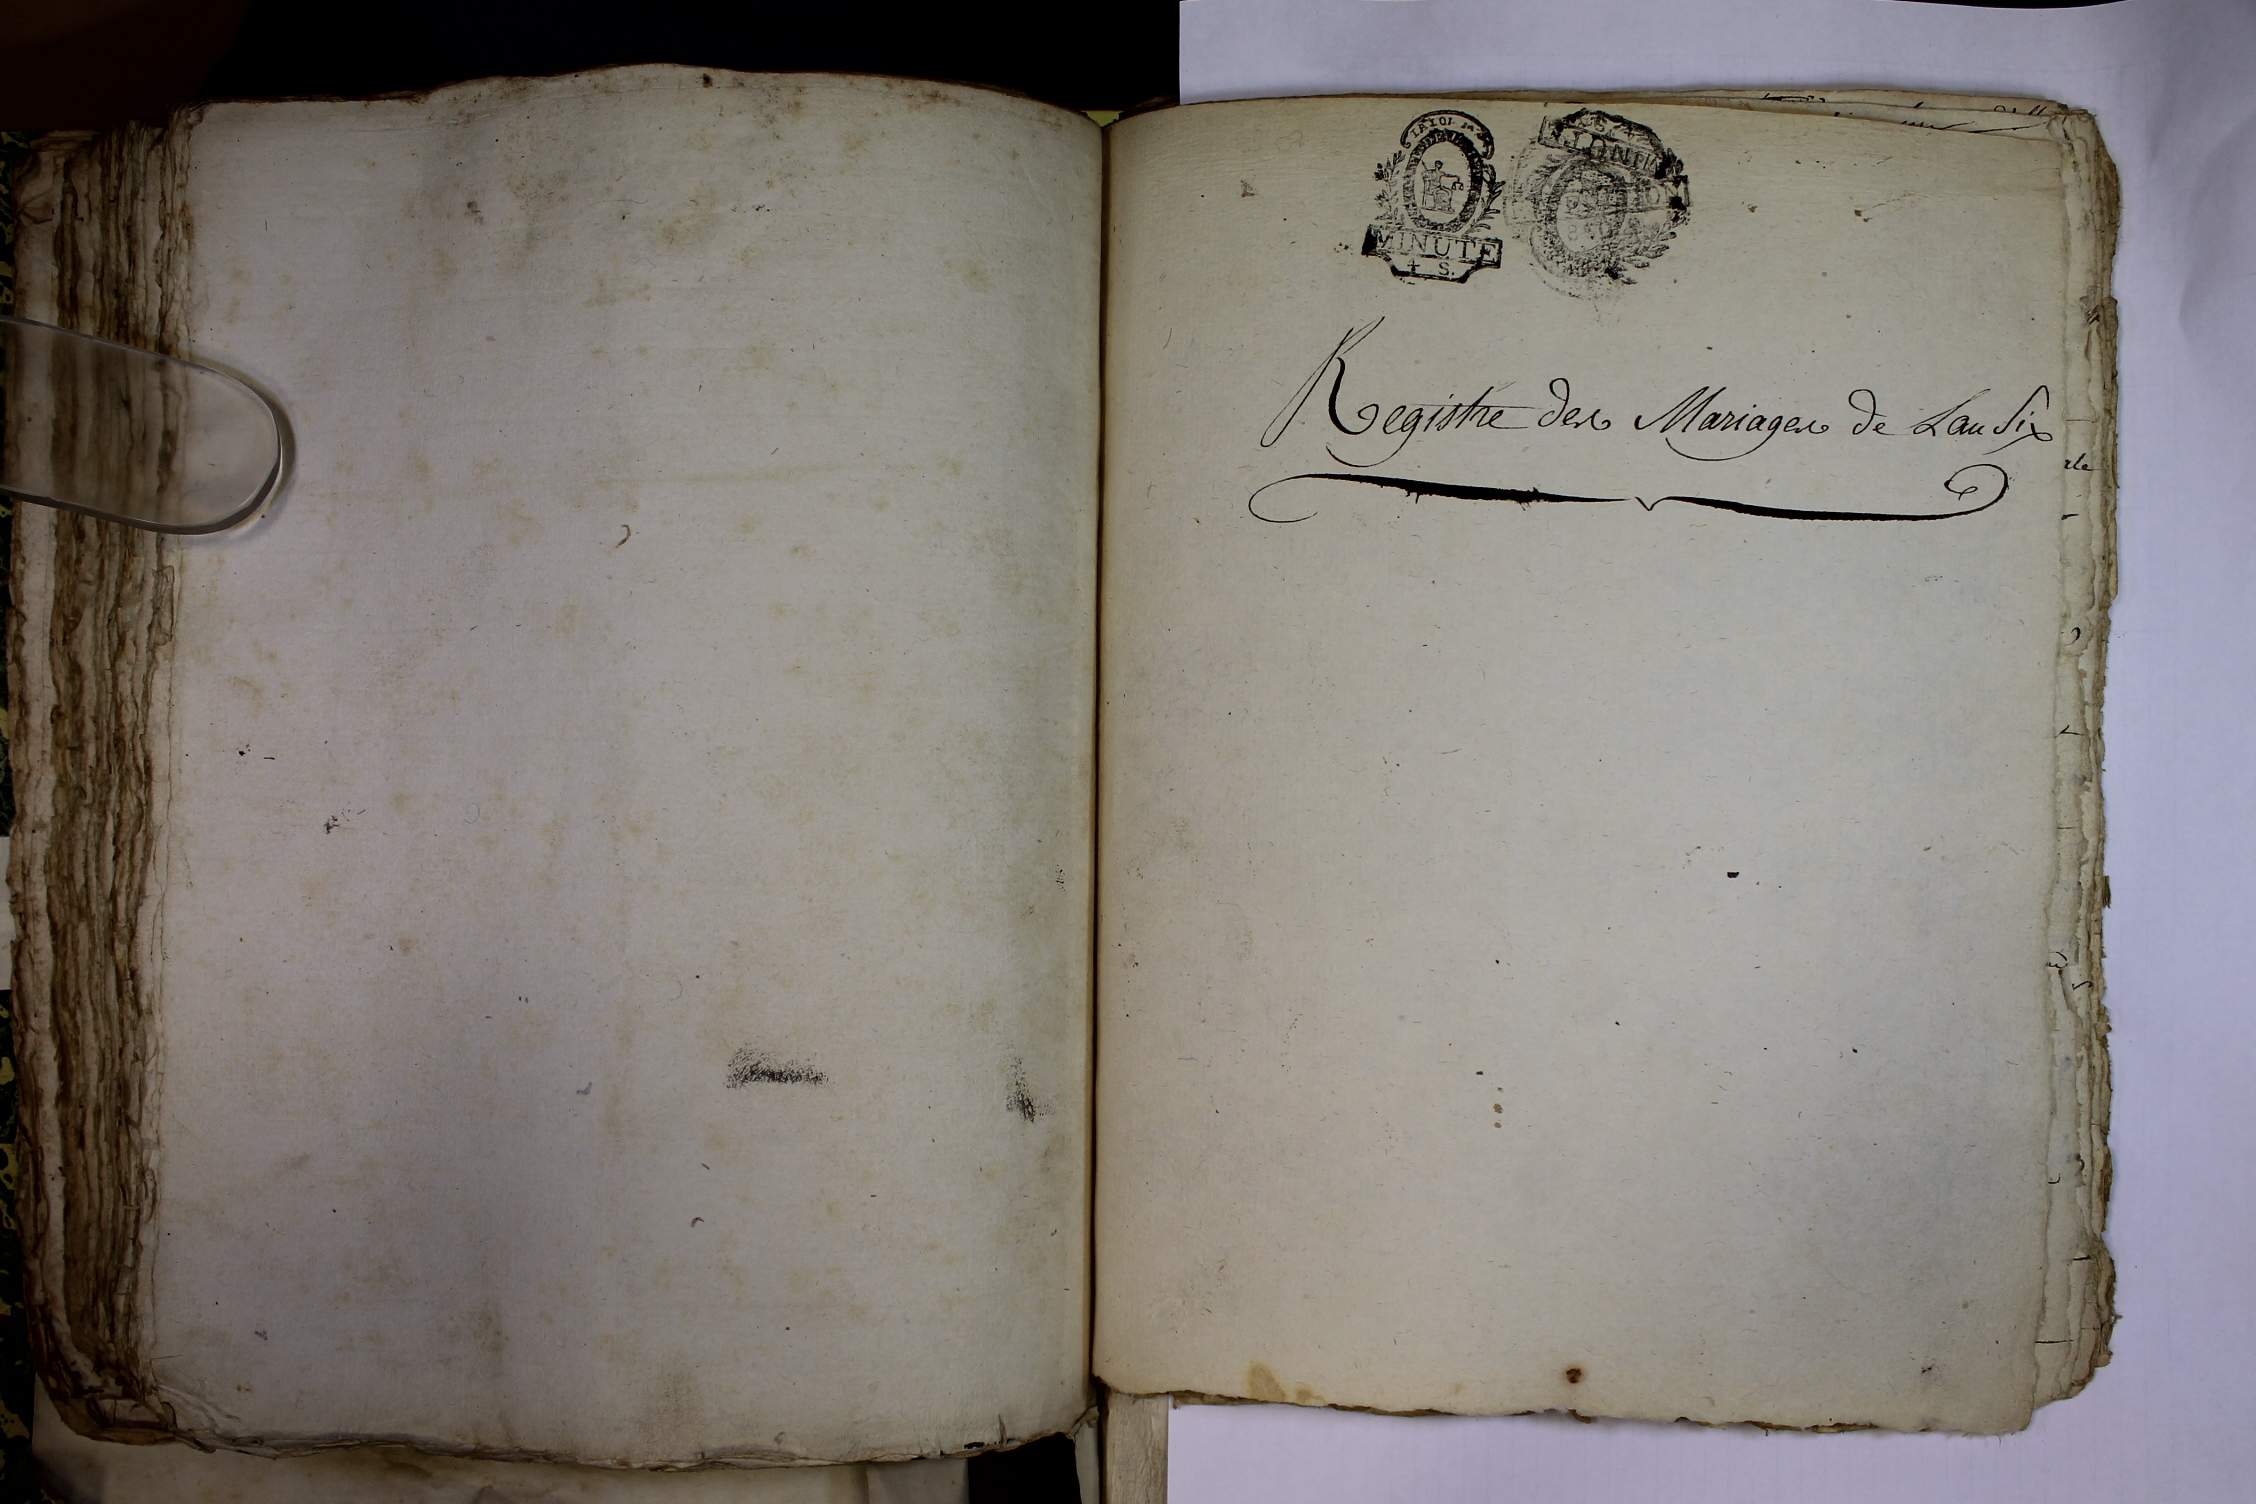 LA LOI
MINUTE
4 S.
Registre des Mariages de Lan Six